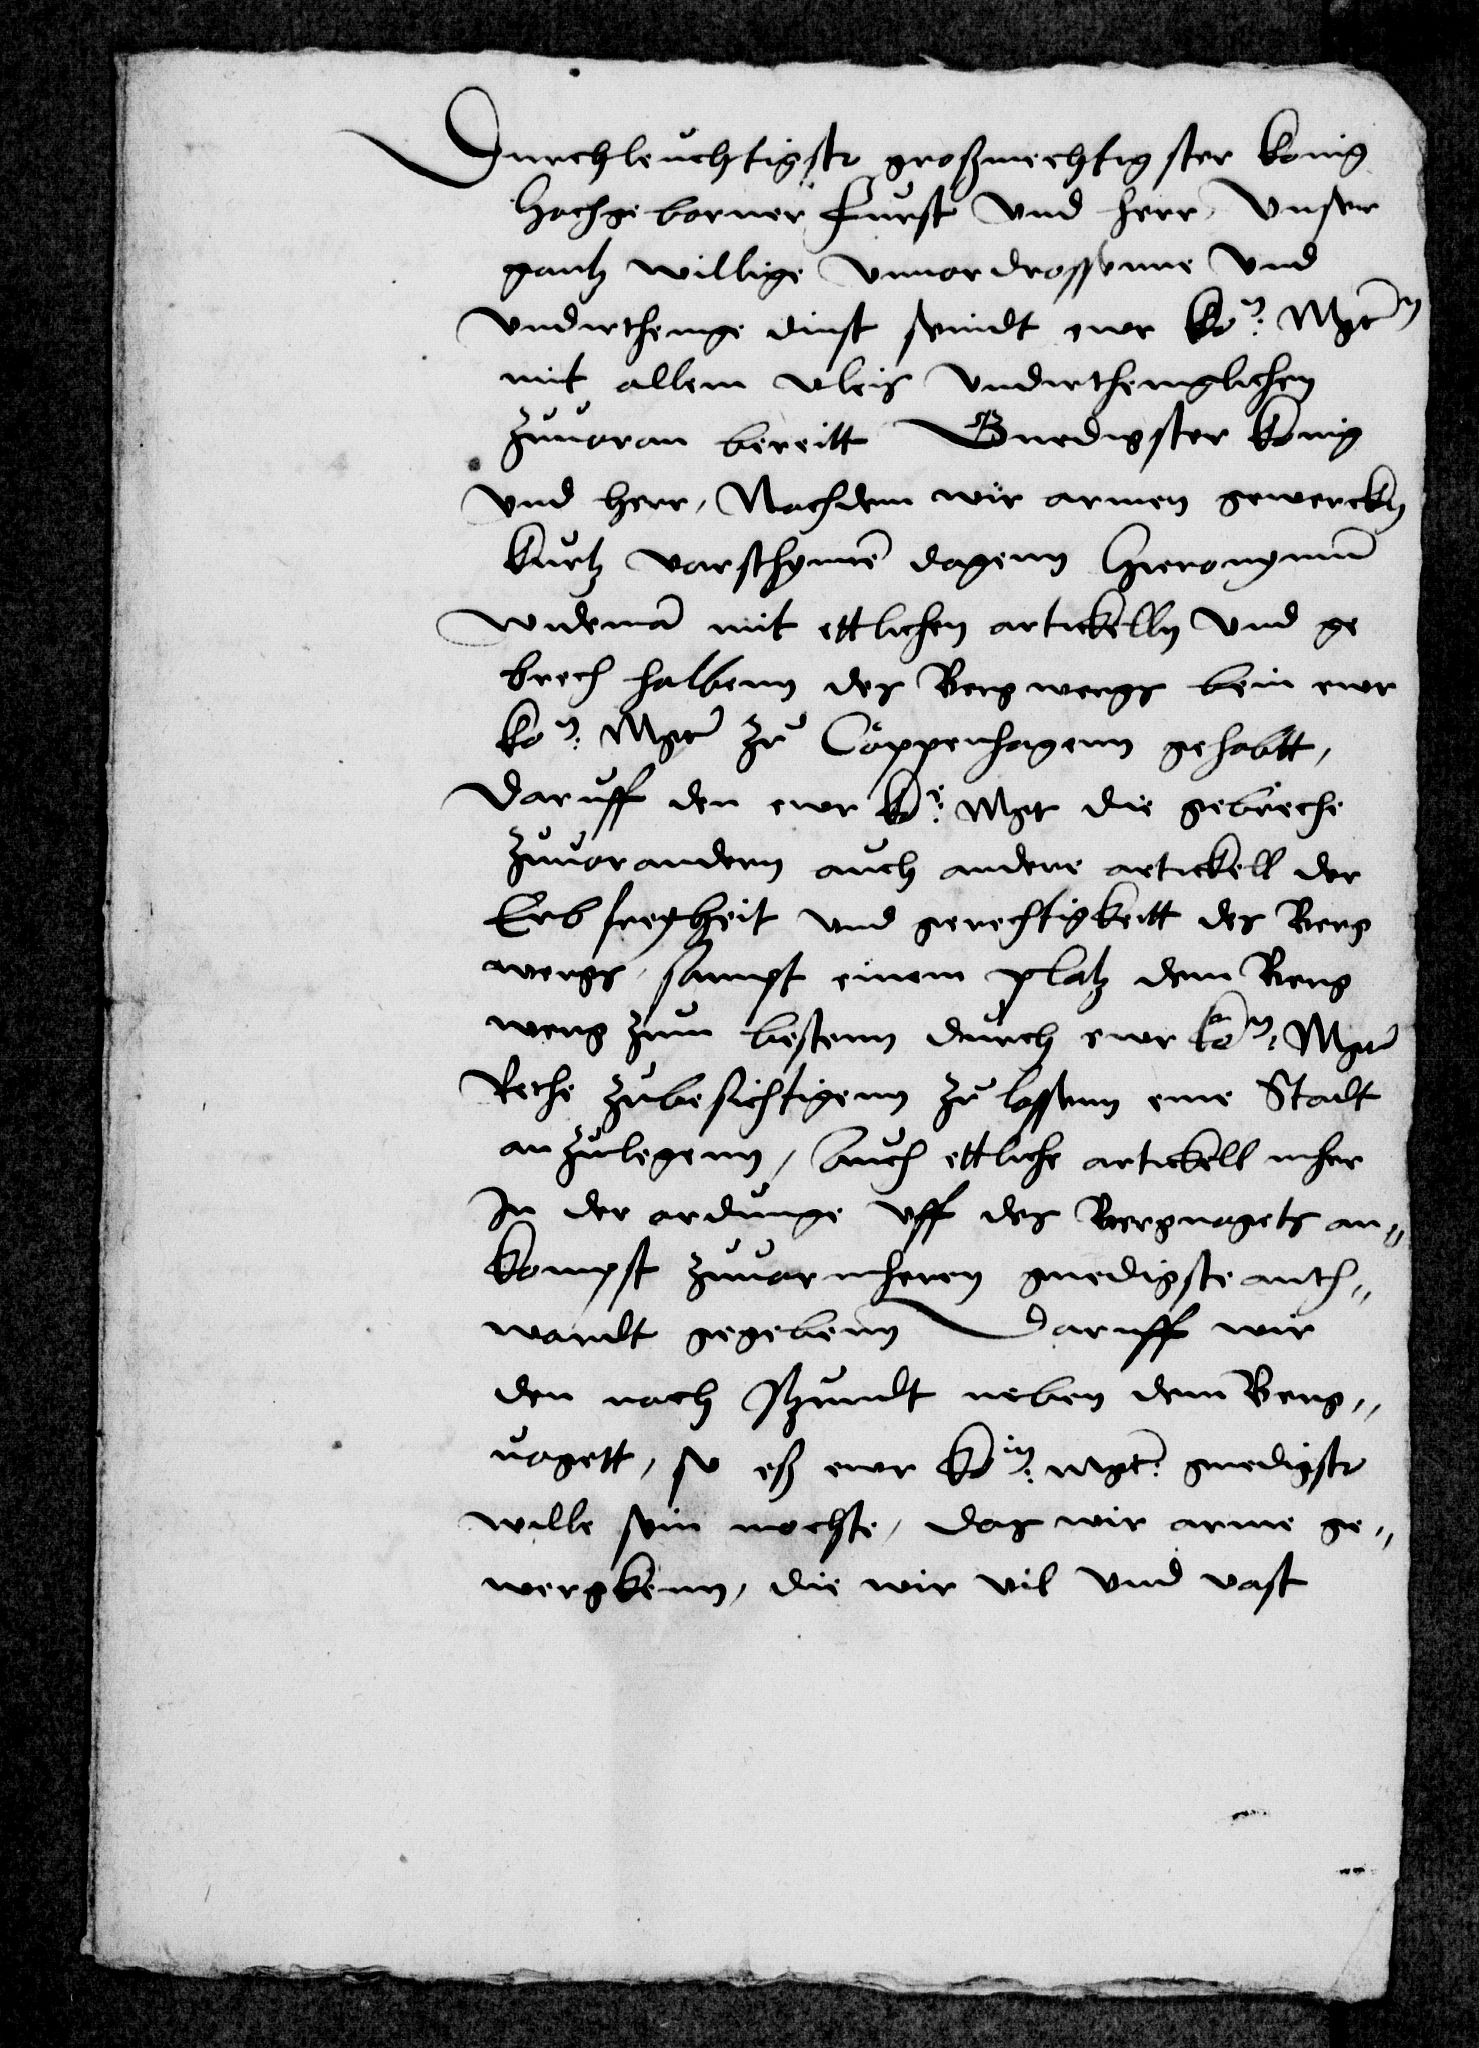 Durchleuchtigster großmechtigster konig
Hochgeborner Furst vnd herr, Vnser
gantz willige vnuordrossenne vnd
vnderthenige dinst seindt ewr ko^n: Mgt^n
mit allem vleis vnderthenglichen
zuuoran bereitt Gnedigster konig
vnd herr, Nachdem wir armen gewercken
kurtz vorschynne dagenn Hieronymu
widema mit ettlichen artickelln vnd ge
brech halbenn des Bergwergs bein ewr
ko^n: Mgt zu Coppenhagenn gehabtt,
Daruff den ewr ko: Mgt die gebreche
zuuorandern auch andere artickell der
Erbfreyheit vnd gerechtigkeitt des Berg
wergs, sampt einem platz dem Berg
werg zum bestenn durch ewr ko^n: Mgt
Rethe zubesichtigenn zu lassenn eine Stadt
anzulegenn, Auch ettliche artickell mher
In der ordunge vff des Berguogets an„
kompst zuuormheren gnedigste anth„
wordt gegebenn Daruff wir
den noch itzundt neben dem Berg„
uogett, so eß ewr ko^in: mgt: gnedigster
wille sein mochte, das wir arme ge„
wergkenn, die wir vil vnd vast